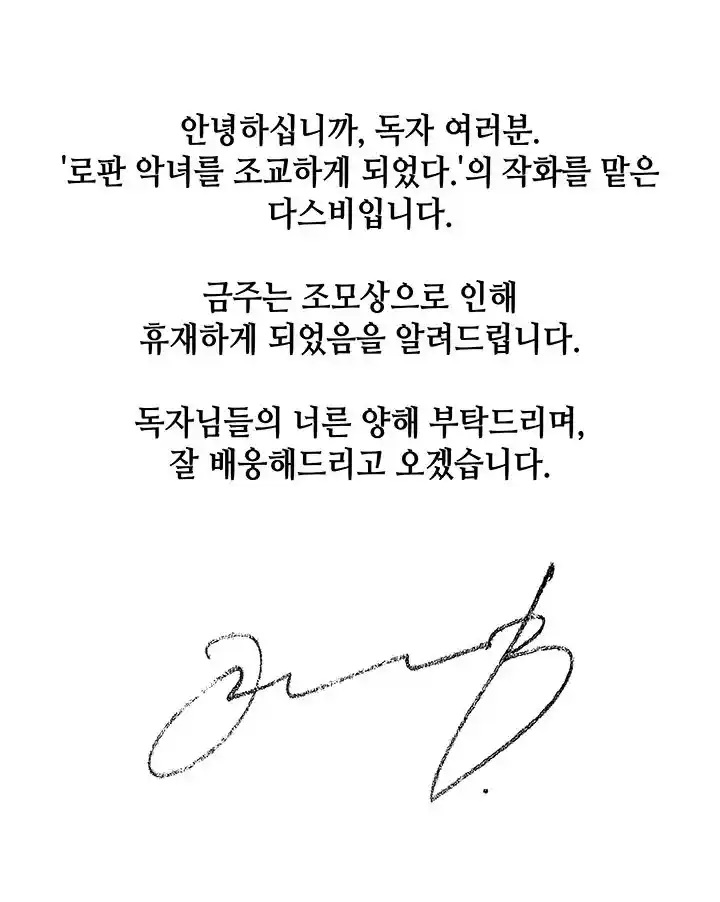 안녕하십니까, 독자 여러분.
'로판 악녀를 조교하게 되었다.'의 작화를 맡은
다스비입니다.
금주는 조모상으로 인해
휴재하게 되었음을 알려드립니다.
독자님들의 너른 양해 부탁드리며,
잘 배웅해드리고 오겠습니다.